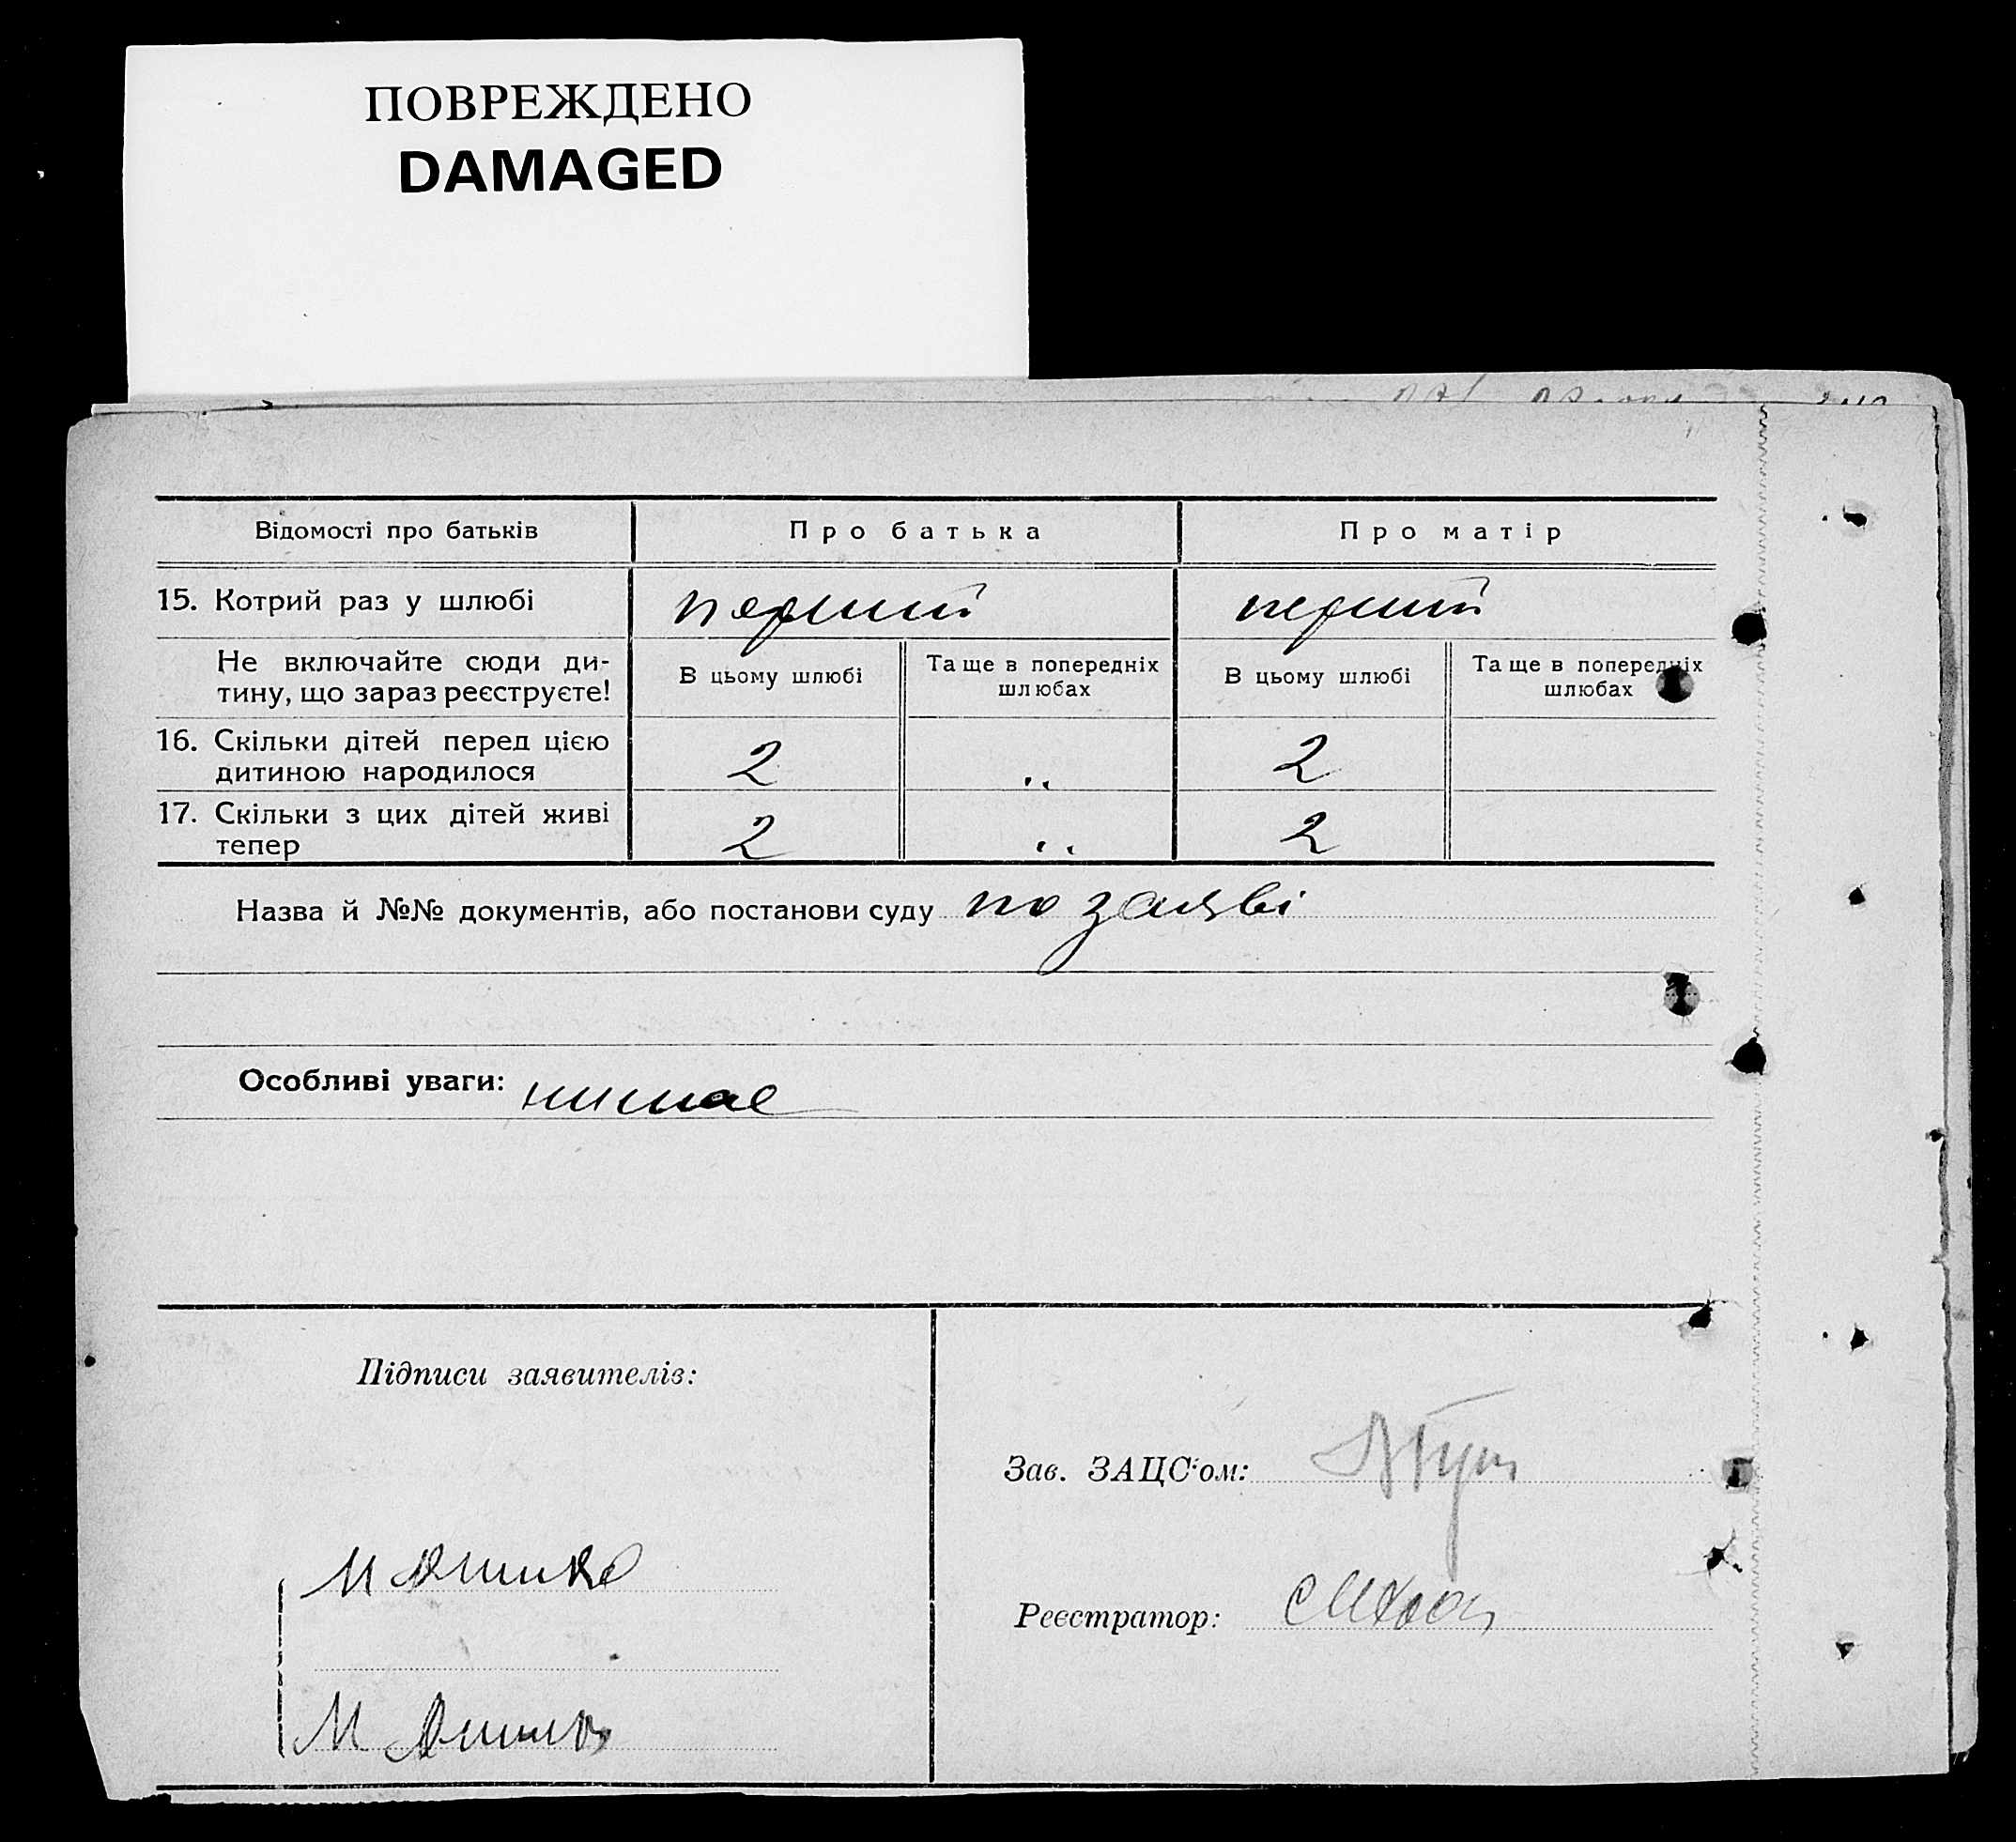 ПОВРЕЖДЕНО
DAMAGED
Відомості про батьків
Про батька
Про матір
15. Котрий раз у шлюбі
перший
перший
Не включайте сюди ди-
тину, що зараз реєструєте!
В цьому шлюбі
Та ще в попередніх
шлюбах
В цьому шлюбі
Та ще в попередніх
шлюбах
16. Скільки дітей перед цією
дитиною народилося
2
"
2
17. Скільки з цих дітей живі
тепер
2
"
2
Назва й №№ документів, або постанови суду по заяві
Особливі уваги: немає
Підписи заявителів:
Зав. ЗАЦС'ом:
М
Реєстратор:
М